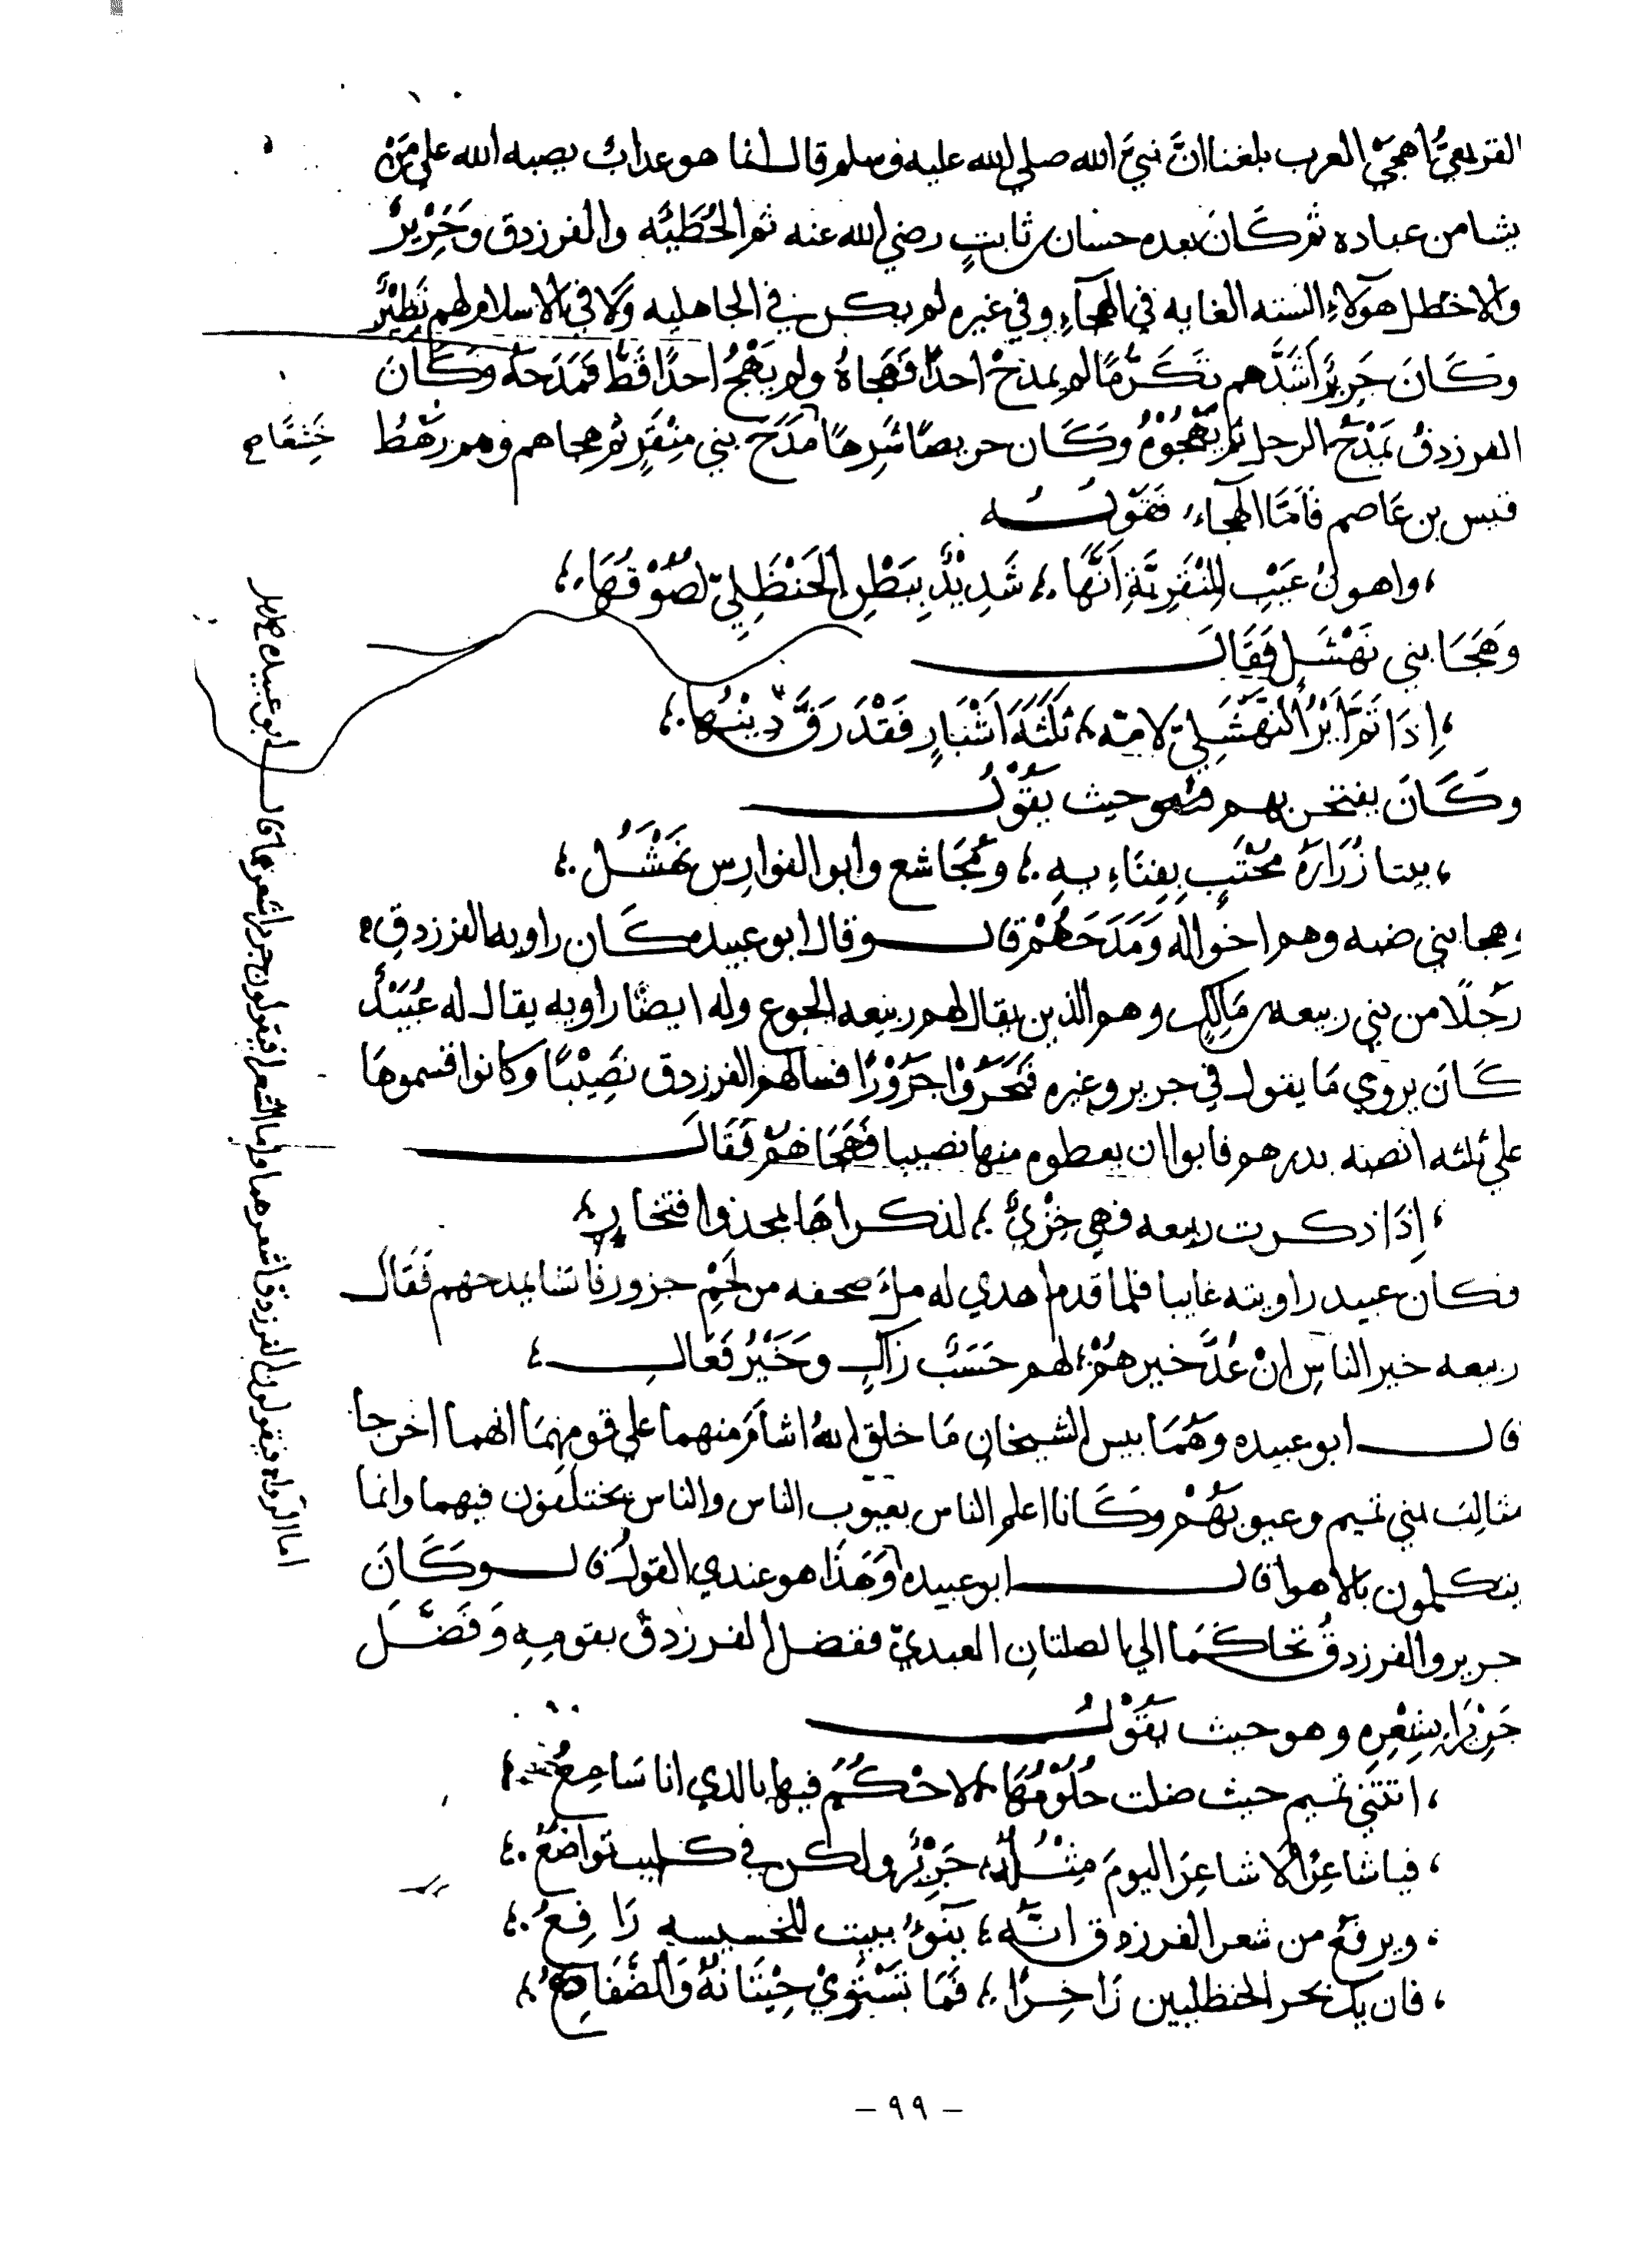 القريعيُّ اهجي العرب بلغنا انَّ نبيَّ الله صلي الله عليه وسلم قال انما هو عذاب يصبه الله علي مَنْ
يشا من عباده ثم كَانَ بعده حسان بن ثابتٍ رضي الله عنه ثم الحُطَيْئَه والفرزدق وَجَرِيْرٌ
والاخطل هولاءِ السته الغايه في الهجآءِ وفي غيره لم يكن في الجاهليه وَلا في الاسلام لهم نَظِيْرٌ
وَكَانَ جَرِيْرٌ اَشَدَّهم تَكَرُّمًا لم يمدحْ احدًا فَهَجاهُ ولم يَهْجُ احدًا قَطُّ فَمَدَحَهُ وَكَانَ
الفرزدقُ يَمْدَحُ الرجل ثم يَهْجُوْهُ وَكَان حريصًا شَرِهًا مَدَحَ بني مِنْقَرٍ ثم هجاهم وهم رَهْطُ
قيس بن عَاصم فَاَمَّا الهجاءُ فَقَوْلُه
واهونُ عَيْبِ المِنْقَرِيَّةِ اَنَّهَا شَدِيْدٌ بِبَطْنِ الحَنْظَلِيّ لصُوْقُهَا
وَهَجَا بني نَهْشَل فَقَالَ
اِذَا تَمَّ اَيْرُ النَّهْشَلِيّ لامّه ثَلَثَهَ اَشْبَارٍ فَقَدْ رَقَّ دِيْنُهَا
وَكَانَ يفتخر بهم فهو حيث يَقُوْلُ
بيتا زُرَارَهُ مُحْتَبٍ بِفِنَاءِ بهِ وَمُجَاشع وابو الفوارِس نَهْشَلُ
وهجا بني ضبه وهم اخوالُه وَمَدَحَهُمْ قال وقال ابو عبيده كَان راويه الفرزدقِ
رَجُلًا من بني ربيعه بن مَالِكٍ وهم الذين يقال لهم ربيعه الجوع وله ايضًا راويه يقال له عُبَيْدٌ
كَانَ يروي مَا يقول في جرير وغيره فَنَحَرُوْا جَزُوْرًا فسالهم الفرزدق نَصِيْبًا وكانوا قسموهَا
علي ثلثه انصبه بدرهم فابوا ان يعطوه منها نصيبا فَهَجَاهُمْ فَقَالَ
اِذَا ذكرت ربيعه فهي خِزْيٌ لذكراهَا بمجدٍ وافتخارِ
فكان عبيد راويته غايبا فلما قدم اهدي له مِلءَ صحفه من لَحْمِ جزور فانشا يمدحهم فَقَال
ربيعه خير الناسِ انْ عُدَّ خيرهُمْ لهم حَسَبٌ زاكٍ وَخَيْرُ فَعَالِ
قال ابو عبيده وَهُمَا بيس الشيخانِ مَا خلق اللهُ اشاَمَ منهما علي قومهِمَا انهما اخرجا
مثالِبَ بني تميم وعيوبَهُمْ وَكَانا اعلم الناس بعيوب الناس والناس يختلفون فيهما وانما
يتكلمون بالاهوا قال ابو عبيده وَهَذَا هو عندي القولُ قال وَكَانَ
جرير والفرزدقُ تحاكَمَا الي الصلتانِ العبديّ ففضل الفرزدقَ بقومِهِ وَفَضَّلَ
جَرِيْرًا بشِعْرِهِ وهو حيث يَقُوْلُ
اتتني تميم حيث ضلت حُلُوْمُهَا لاحْكُمَ فيها بالذي انا سَامِعُ
فيا شاعِرًا لا شاعِرَ اليومَ مِثْلُهُ جَرِيْرُ ولكن في كليب تواضُعُ
ويرفَعُ من شعر الفرزدق انَّه ينوءُ ببيت للخسيسه رَافِعُ
فان يك بحر الحنظليين زَاخِرًا فَمَا تَسْتَوِيْ حِيْتَانُهُ وَالضَّفَادِعُ
اما الرواه فيقولون الفرزدق اشعرهما واما الشعرا فيقولون جرير اشعرهما قال ابو عبيده
- ٩٩ -